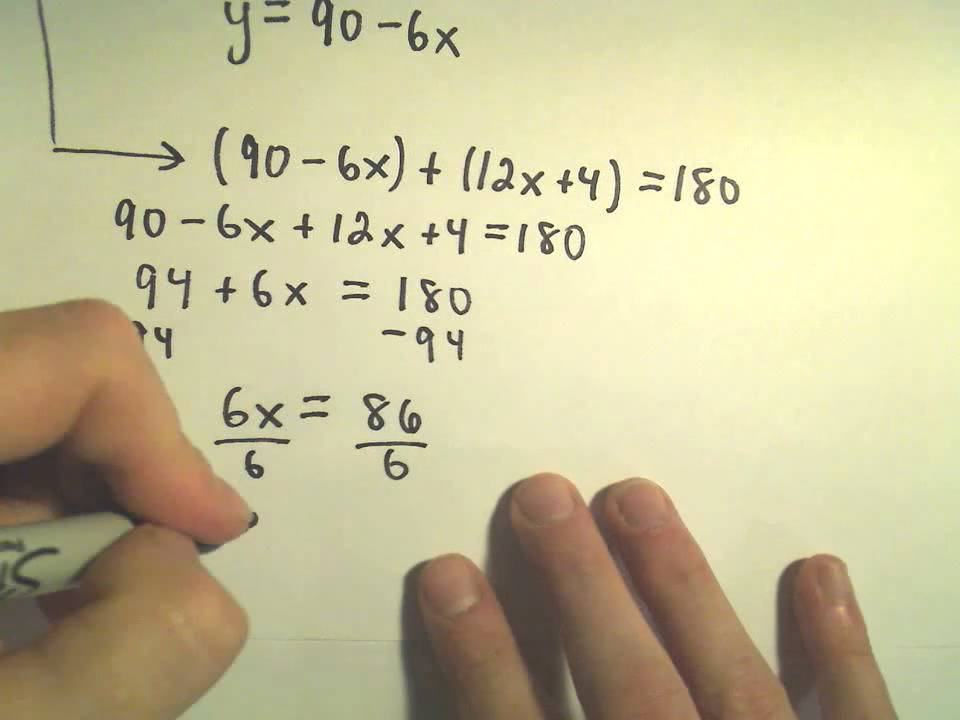 y = 90 - 6x
(90 - 6x) + (12x + 4) = 180
90 - 6x + 12x + 4 = 180
94 + 6x = 180
94 -94
6x = 86
6 6